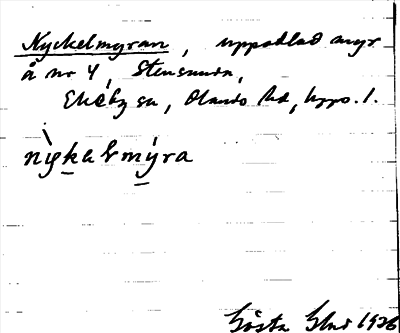 Nyckelmyran, uppodlad myr
å nr 4, Stensunda,
Ekeby sn, Olands hd, Uppl.
nỳkaḷmýra
Gösta 1926